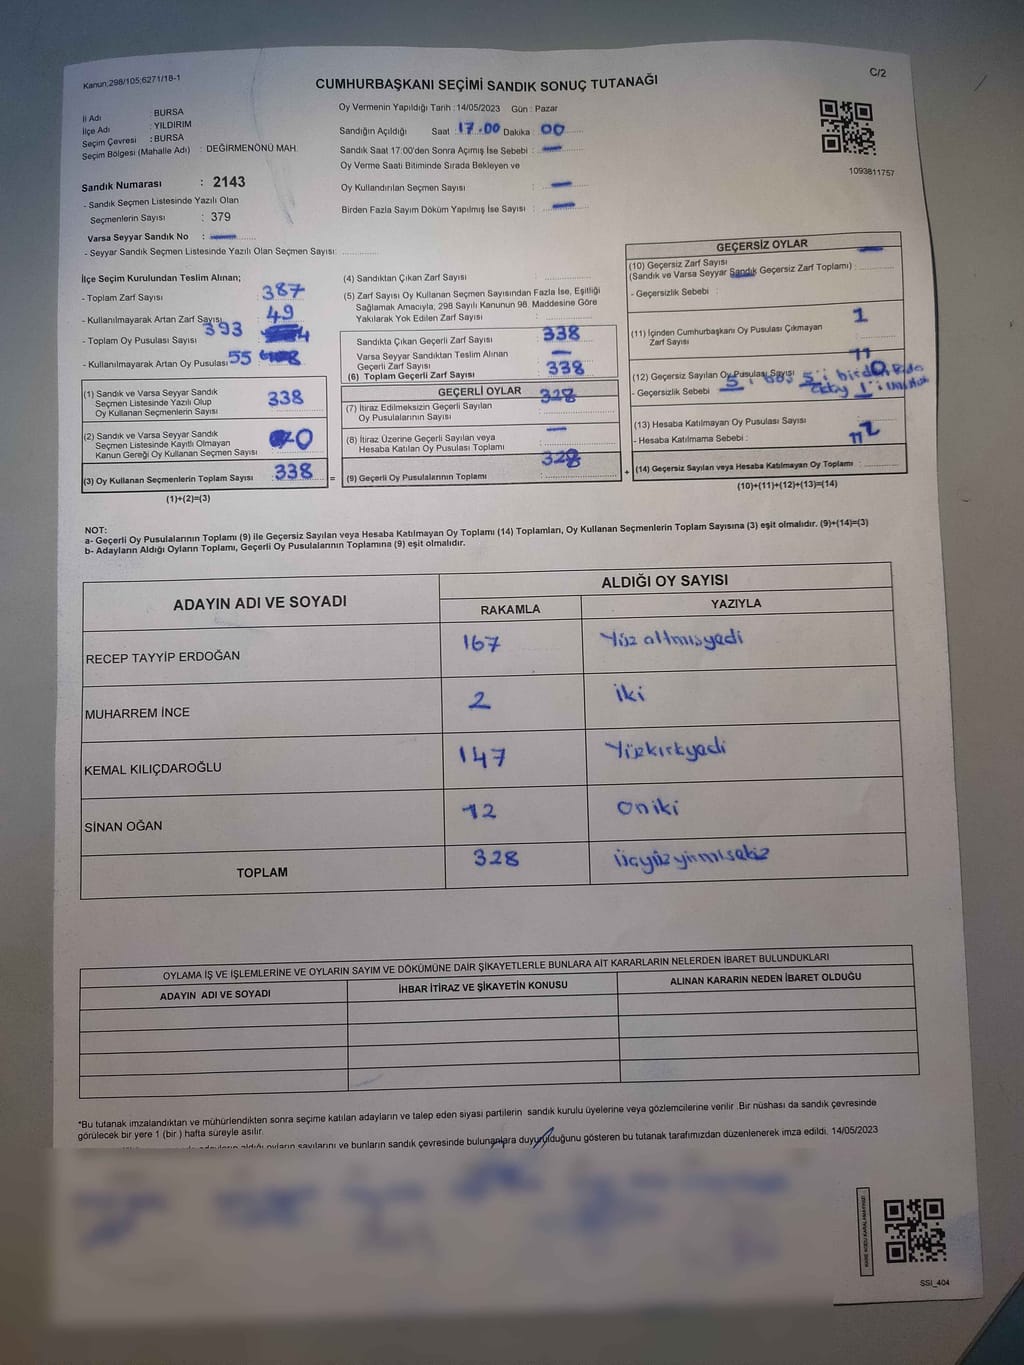 Kanun;298/105;6271/18-1
C/2
CUMHURBAŞKANI SEÇİMİ SANDIK SONUÇ TUTANAĞI
İl Adı : BURSA
İlçe Adı : YILDIRIM
Seçim Çevresi : BURSA
Seçim Bölgesi (Mahalle Adı) : DEĞİRMENÖNÜ MAH.
Oy Vermenin Yapıldığı Tarih :14/05/2023 Gün : Pazar
Sandığın Açıldığı Saat :17.00 Dakika : 00
Sandık Saat 17:00'den Sonra Açımış İse Sebebi : —
Oy Verme Saati Bitiminde Sırada Bekleyen ve
Oy Kullandırılan Seçmen Sayısı : —
Birden Fazla Sayım Döküm Yapılmış İse Sayısı : —
1093811757
Sandık Numarası : 2143
- Sandık Seçmen Listesinde Yazılı Olan
Seçmenlerin Sayısı : 379
Varsa Seyyar Sandık No : —
- Seyyar Sandık Seçmen Listesinde Yazılı Olan Seçmen Sayısı:
İlçe Seçim Kurulundan Teslim Alınan;
- Toplam Zarf Sayısı 387
- Kullanılmayarak Artan Zarf Sayısı 49
- Toplam Oy Pusulası Sayısı 393
- Kullanılmayarak Artan Oy Pusulası 55
(1) Sandık ve Varsa Seyyar Sandık
Seçmen Listesinde Yazılı Olup
Oy Kullanan Seçmenlerin Sayısı 338
(2) Sandık ve Varsa Seyyar Sandık
Seçmen Listesinde Kayıtlı Olmayan
Kanun Gereği Oy Kullanan Seçmen Sayısı 0
(3) Oy Kullanan Seçmenlerin Toplam Sayısı : 338 =
(1)+(2)=(3)
(4) Sandıktan Çıkan Zarf Sayısı :
(5) Zarf Sayısı Oy Kullanan Seçmen Sayısından Fazla İse, Eşitliği
Sağlamak Amacıyla, 298 Sayılı Kanunun 98. Maddesine Göre
Yakılarak Yok Edilen Zarf Sayısı :
Sandıkta Çıkan Geçerli Zarf Sayısı 338
Varsa Seyyar Sandıktan Teslim Alınan
Geçerli Zarf Sayısı —
(6) Toplam Geçerli Zarf Sayısı 338
GEÇERLİ OYLAR
(7) İtiraz Edilmeksizin Geçerli Sayılan
Oy Pusulalarının Sayısı 328
(8) İtiraz Üzerine Geçerli Sayılan veya
Hesaba Katılan Oy Pusulası Toplamı : —
(9) Geçerli Oy Pusulalarının Toplamı 328 +
GEÇERSİZ OYLAR
(10) Geçersiz Zarf Sayısı
(Sandık ve Varsa Seyyar Sandık Geçersiz Zarf Toplamı) : —
- Geçersizlik Sebebi :
(11) İçinden Cumhurbaşkanı Oy Pusulası Çıkmayan
Zarf Sayısı 1
(12) Geçersiz Sayılan Oy Pusulası Sayısı 11
- Geçersizlik Sebebi 5'i boş 5'i birden
1'i
(13) Hesaba Katılmayan Oy Pusulası Sayısı
- Hesaba Katılmama Sebebi :
(14) Geçersiz Sayılan veya Hesaba Katılmayan Oy Toplamı :
(10)+(11)+(12)+(13)=(14)
NOT:
a- Geçerli Oy Pusulalarının Toplamı (9) ile Geçersiz Sayılan veya Hesaba Katılmayan Oy Toplamı (14) Toplamları, Oy Kullanan Seçmenlerin Toplam Sayısına (3) eşit olmalıdır. (9)+(14)=(3)
b- Adayların Aldığı Oyların Toplamı, Geçerli Oy Pusulalarının Toplamına (9) eşit olmalıdır.
ADAYIN ADI VE SOYADI
ALDIĞI OY SAYISI
RAKAMLA YAZIYLA
RECEP TAYYİP ERDOĞAN 167 Yüz altmışyedi
MUHARREM İNCE 2 iki
KEMAL KILIÇDAROĞLU 147 Yüzkırkyedi
SİNAN OĞAN 12 oniki
TOPLAM 328 üçyüzyirmisekiz
OYLAMA İŞ VE İŞLEMLERİNE VE OYLARIN SAYIM VE DÖKÜMÜNE DAİR ŞİKAYETLERLE BUNLARA AİT KARARLARIN NELERDEN İBARET BULUNDUKLARI
ADAYIN ADI VE SOYADI İHBAR İTİRAZ VE ŞİKAYETİN KONUSU ALINAN KARARIN NEDEN İBARET OLDUĞU
*Bu tutanak imzalandıktan ve mühürlendikten sonra seçime katılan adayların ve talep eden siyasi partilerin sandık kurulu üyelerine veya gözlemcilerine verilir .Bir nüshası da sandık çevresinde
görülecek bir yere 1 (bir ) hafta süreyle asılır.
oyların sayılarını ve bunların sandık çevresinde bulunanlara duyurulduğunu gösteren bu tutanak tarafımızdan düzenlenerek imza edildi. 14/05/2023
SSİ_404